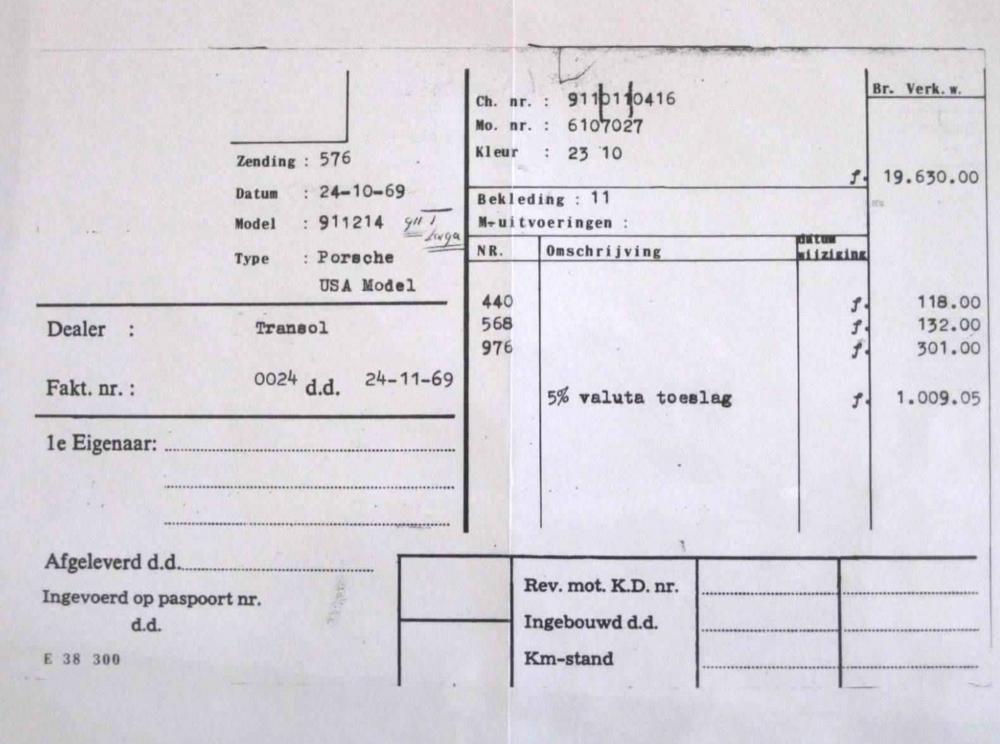 Zending : 576
Datum : 24-10-69
Model : 911214 911 T
Targa
Type : Porsche
USA Model
Dealer : Transol
Fakt. nr. : 0024 d.d. 24-11-69
1e Eigenaar:
Afgeleverd d.d.
Ingevoerd op paspoort nr.
d.d.
E 38 300
Ch. nr. : 9110110416
Mo. nr. : 6107027
Kleur : 23 10
Br. Verk. w.
f. 19.630.00
Bekleding : 11
M-uitvoeringen :
NR. Omschrijving datum wijziging
440 f. 118.00
568 f. 132.00
976 f. 301.00
5% valuta toeslag f. 1.009.05
Rev. mot. K.D. nr.
Ingebouwd d.d.
Km-stand